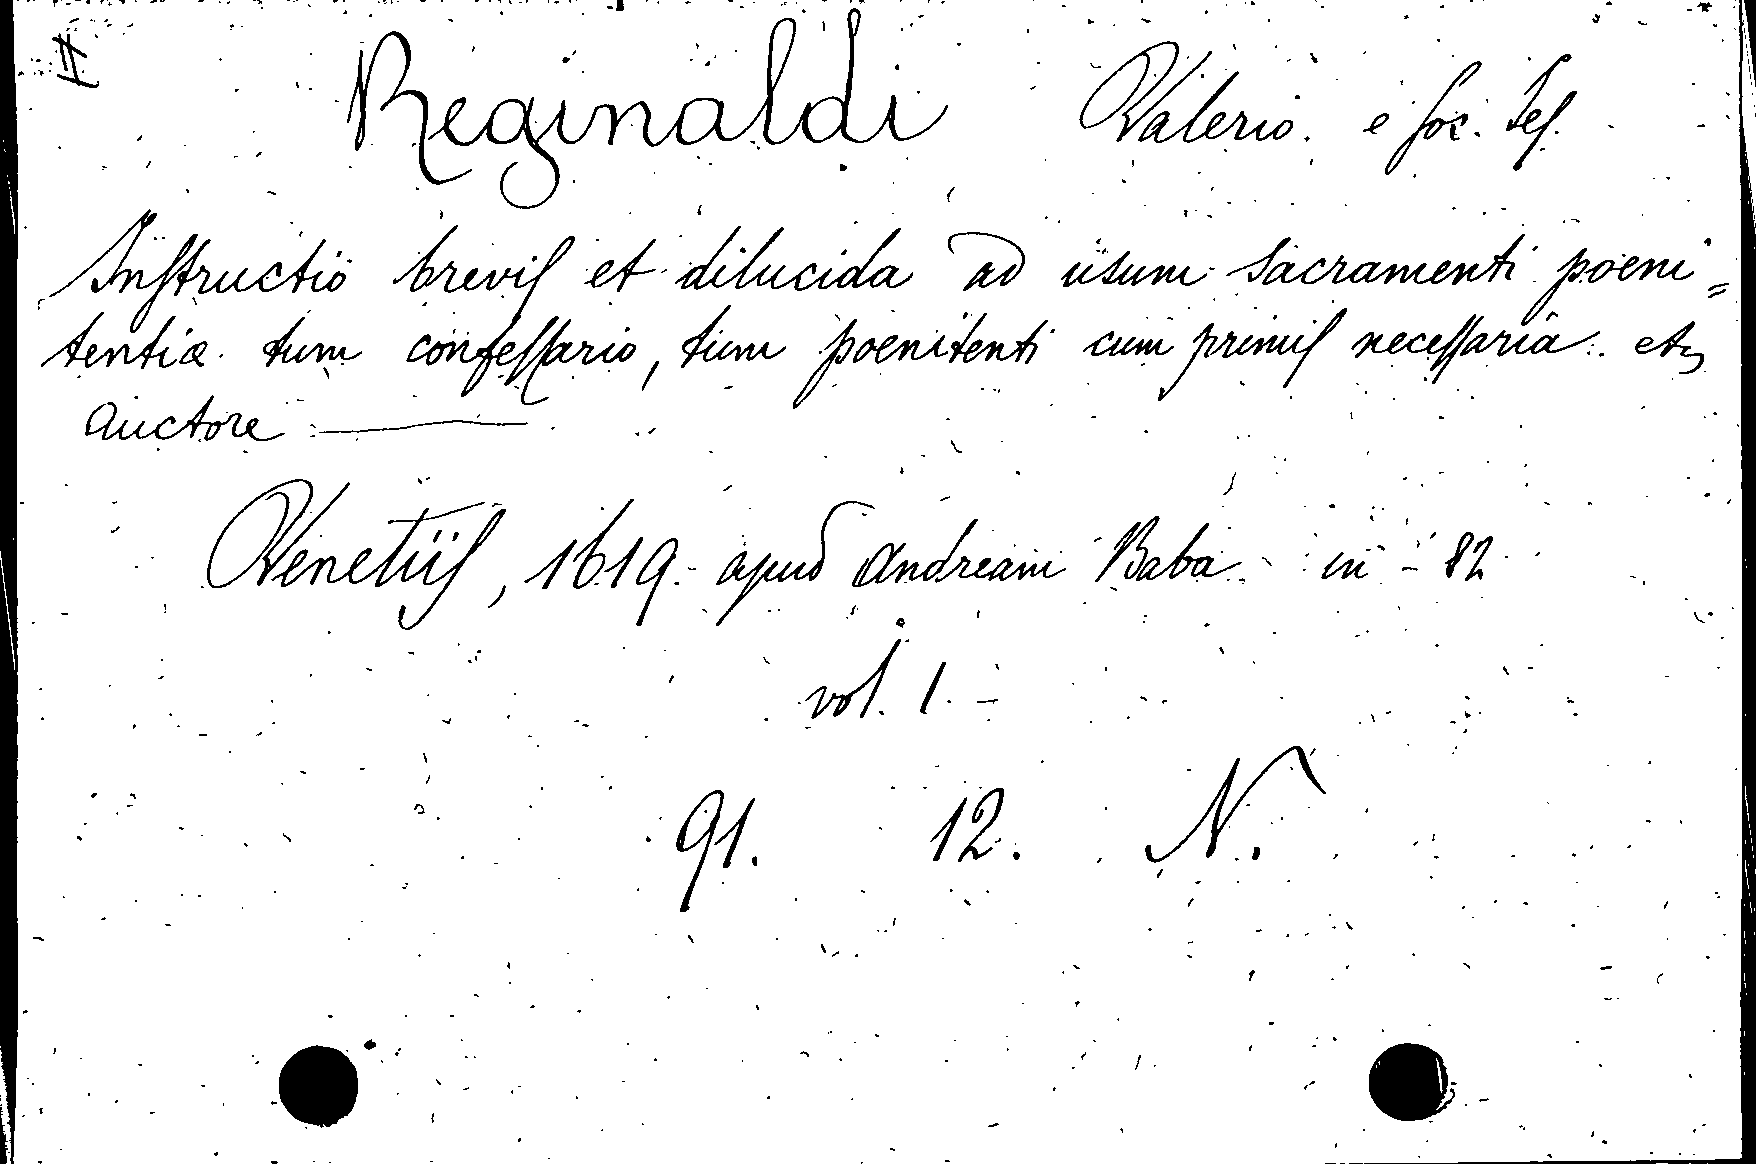 II
Reginaldi Valerio. e Soc. Jes.
Instructio brevis et dilucida ad usum Sacramenti poeni=
tentiæ tum confessario, tum poenitenti cum primis necessaria. etc
auctore —
Venetiis, 1619. apud Andream Baba in - 82
vol. 1
91. 12. N.